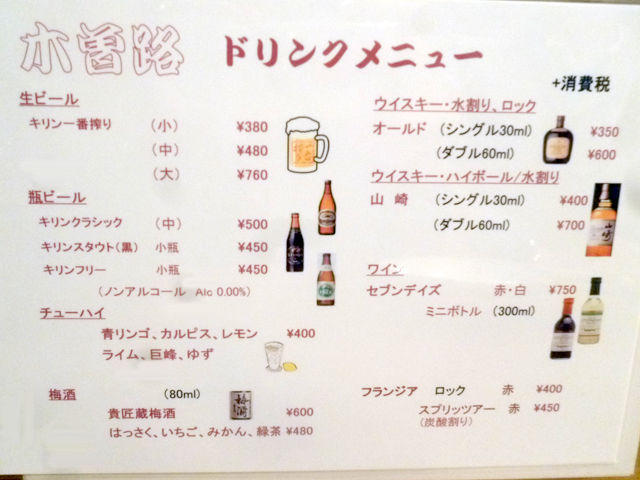 木曽路 ドリンクメニュー
+消費税
生ビール
キリン一番搾り （小） ¥380
（中） ¥480
（大） ¥760
瓶ビール
キリンクラシック （中） ¥500
キリンスタウト（黒） 小瓶 ¥450
キリンフリー 小瓶 ¥450
（ノンアルコール Alc 0.00%）
チューハイ
青リンゴ、カルピス、レモン ¥400
ライム、巨峰、ゆず
梅酒 （80ml）
貴匠蔵梅酒 ¥600
はっさく、いちご、みかん、緑茶 ¥480
ウイスキー・水割り、ロック
オールド （シングル30ml） ¥350
（ダブル60ml） ¥600
ウイスキー・ハイボール/水割り
山崎 （シングル30ml） ¥400
（ダブル60ml） ¥700
ワイン
セブンデイズ 赤・白 ¥750
ミニボトル （300ml）
フランジア ロック 赤 ¥400
スプリッツアー 赤 ¥450
（炭酸割り）